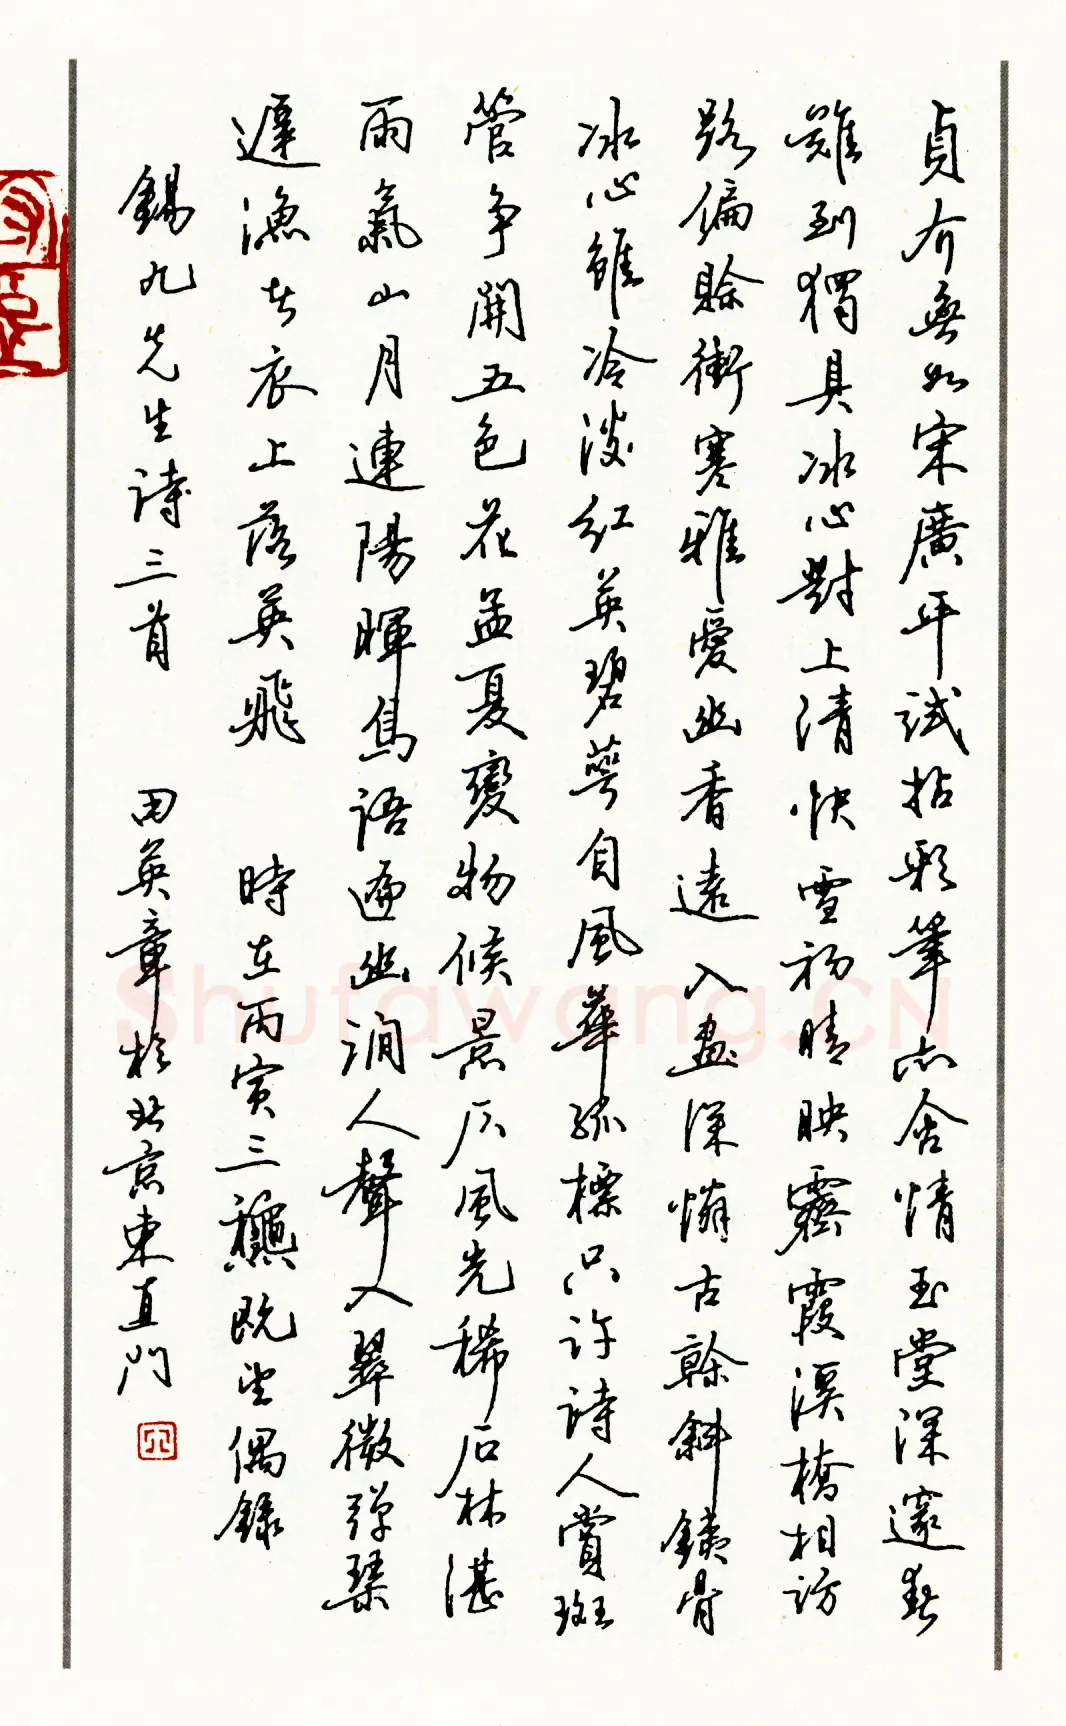 貞介無如宋廣平試拈彩筆亦含情玉堂深邃春
難到獨具冰心對上清快雪初晴映霽霞溪橋相訪
路偏賒衝寒雅愛幽香遠入畫深憐古榦斜鐵骨
冰心雖冷淡紅英碧萼自風華孤標只許詩人賞斑
管争開五色花孟夏變物候景仄風光稀石林湛
雨氣山月連陽暉鳥語遍幽澗人聲入翠微彈琴
遲漁者衣上落英飛 時在丙寅三龝既望偶錄
錫九先生詩三首 田英章於北京東直門
Shufawang.CN